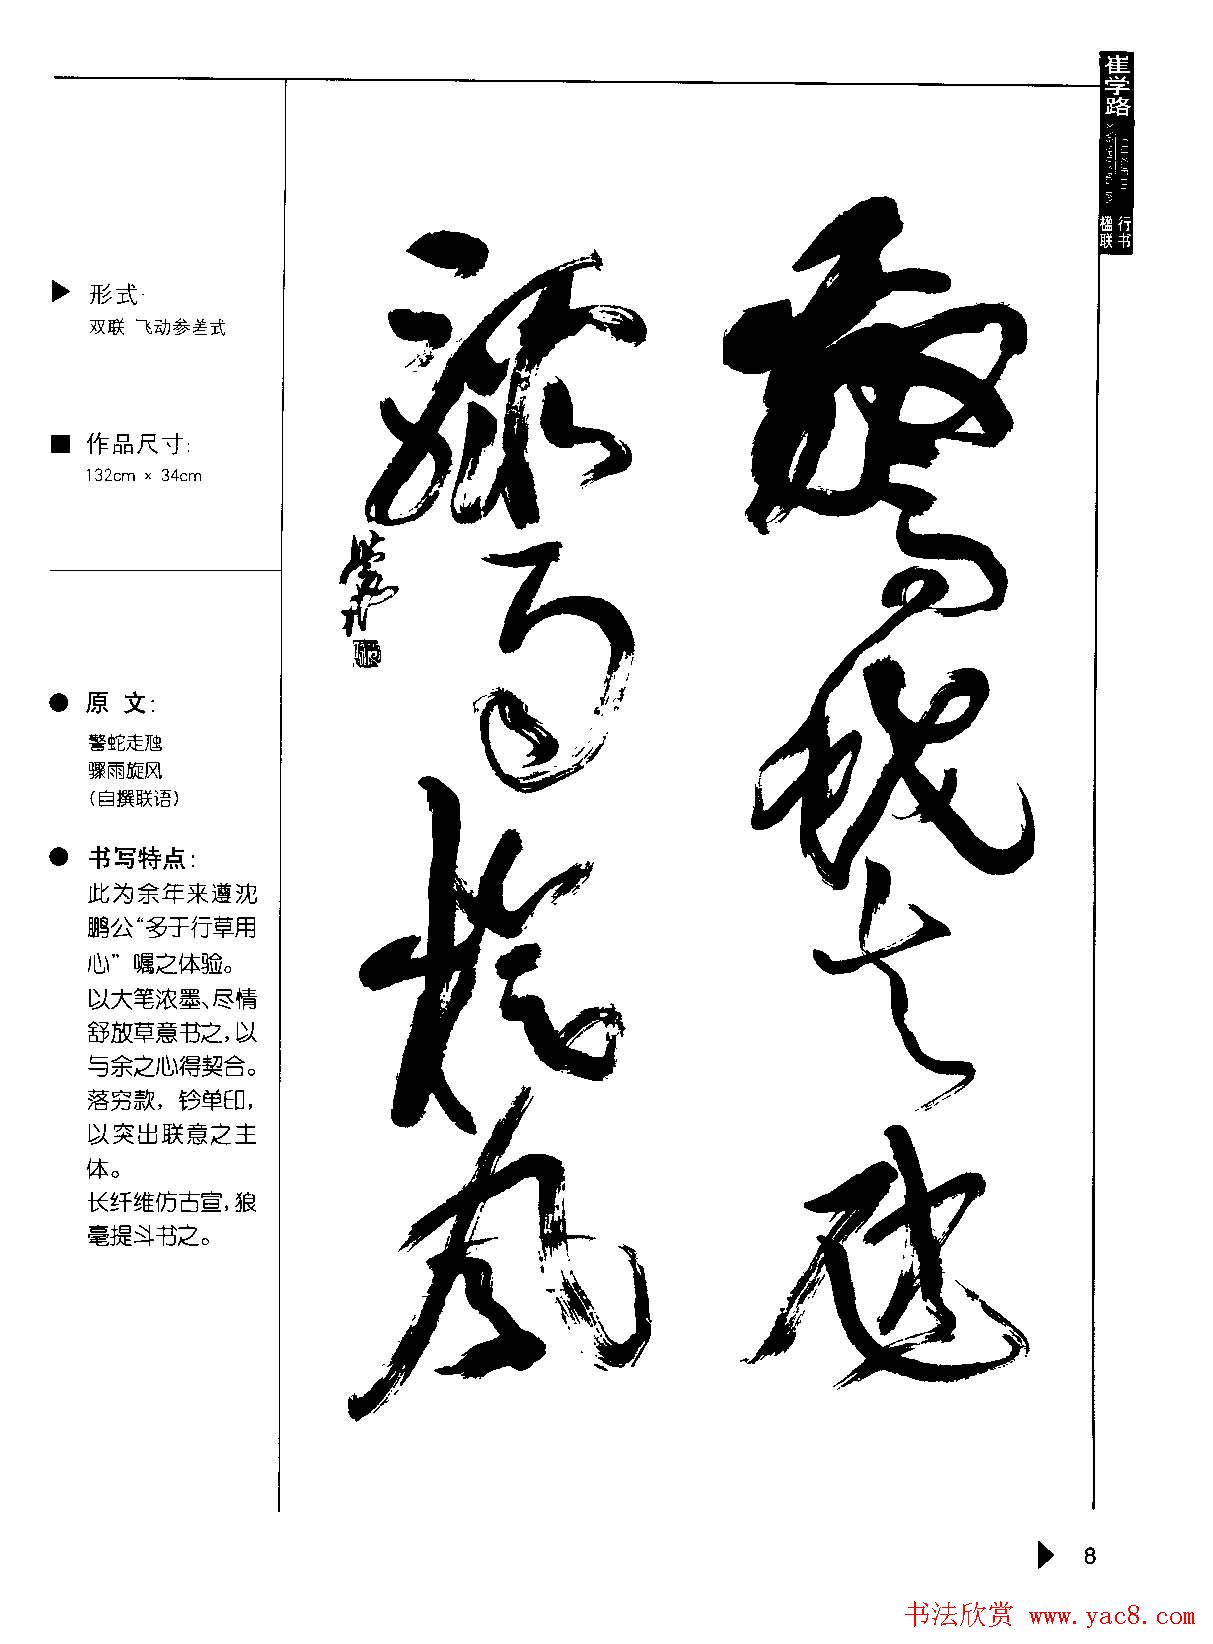 崔学路
行书
楹联
形式:
双联 飞动参差式
作品尺寸:
132cm × 34cm
原 文:
警蛇走虺
骤雨旋风
(自撰联语)
书写特点:
此为余年来遵沈
鹏公“多于行草用
心”嘱之体验。
以大笔浓墨、尽情
舒放草意书之,以
与余之心得契合。
落穷款,钤单印,
以突出联意之主
体。
长纤维仿古宣,狼
毫提斗书之。
驚蛇走虺
骤雨旋风
8
书法欣赏 www.yac8.com